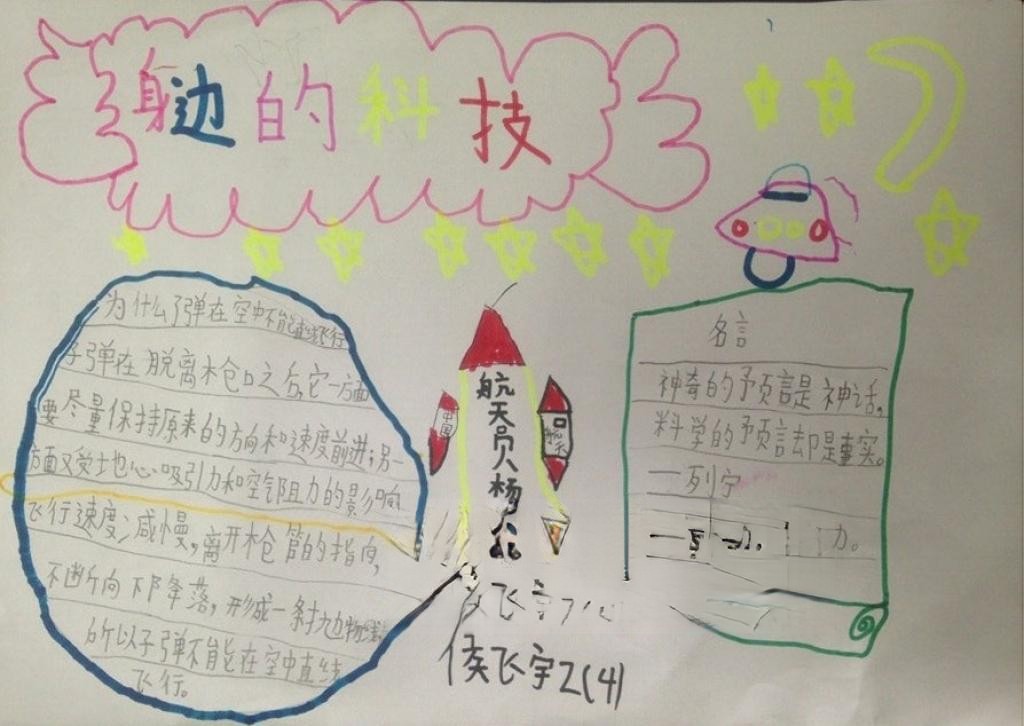 身边的科技
为什么子弹在空中不能直线飞行
子弹在脱离木仓口之后,它一方面
要尽量保持原来的方向和速度前进;另一
方面又受士也心吸引力和空气阻力的影响
飞行速度减慢,离开枪管的指向,
不断向下降落,形成一条抛物线
所以子弹不能在空中直线
飞行。
中国
航天员杨
航天
侯飞宇2(4)
名言
神奇的予言是神话,
科学的预言却是事实。
——列宁
力。